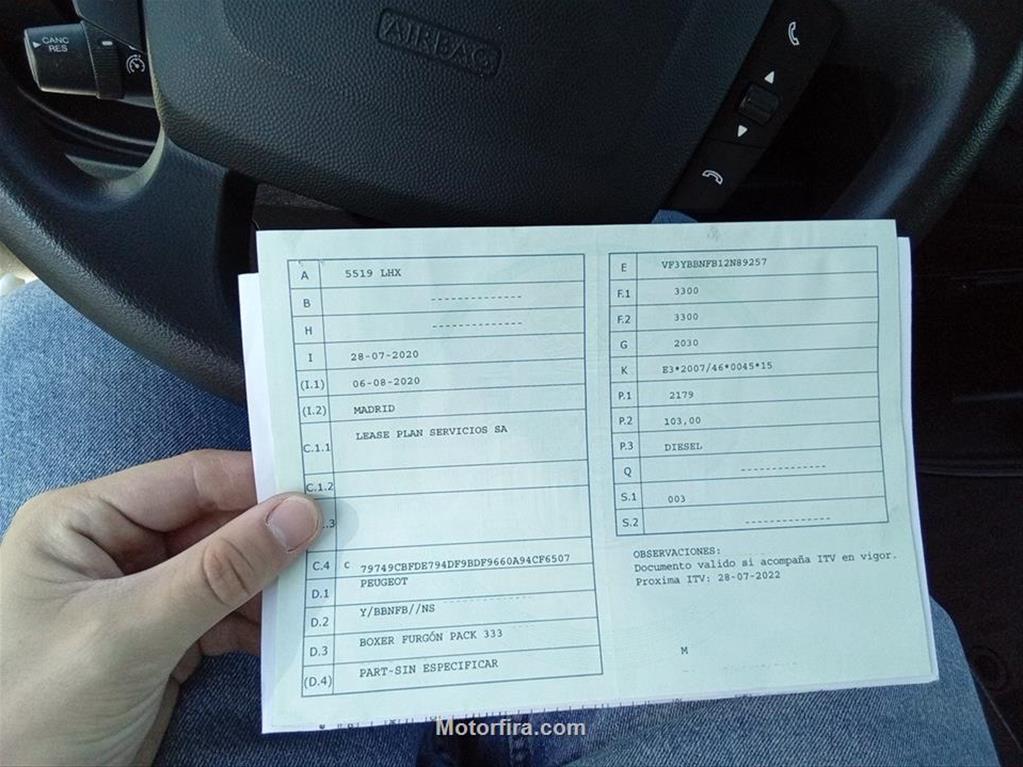 CANC
RES
AIRBAG
A 5519 LHX
B --------------
H --------------
I 28-07-2020
(I.1) 06-08-2020
(I.2) MADRID
C.1.1 LEASE PLAN SERVICIOS SA
C.1.2
..3
C.4 C 79749CBFDE794DF9BDF9660A94CF6507
D.1 PEUGEOT
D.2 Y/BBNFB//NS --------------
D.3 BOXER FURGÓN PACK 333
(D.4) PART-SIN ESPECIFICAR
E VF3YBBNFB12N89257
F.1 3300
F.2 3300
G 2030
K E3*2007/46*0045*15
P.1 2179
P.2 103,00
P.3 DIESEL
Q -------------
S.1 003
S.2 -------------
OBSERVACIONES:
Documento valido si acompaña ITV en vigor.
Proxima ITV: 28-07-2022
M
Motorfira.com